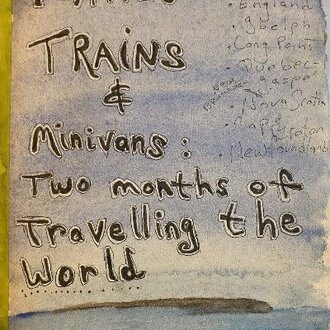 TRAINS
&
Minivans:
Two months of
Travelling the
World
• England
• Guelph
• Quebec
• gaspe
• Nova Scotia
• Newfoundland